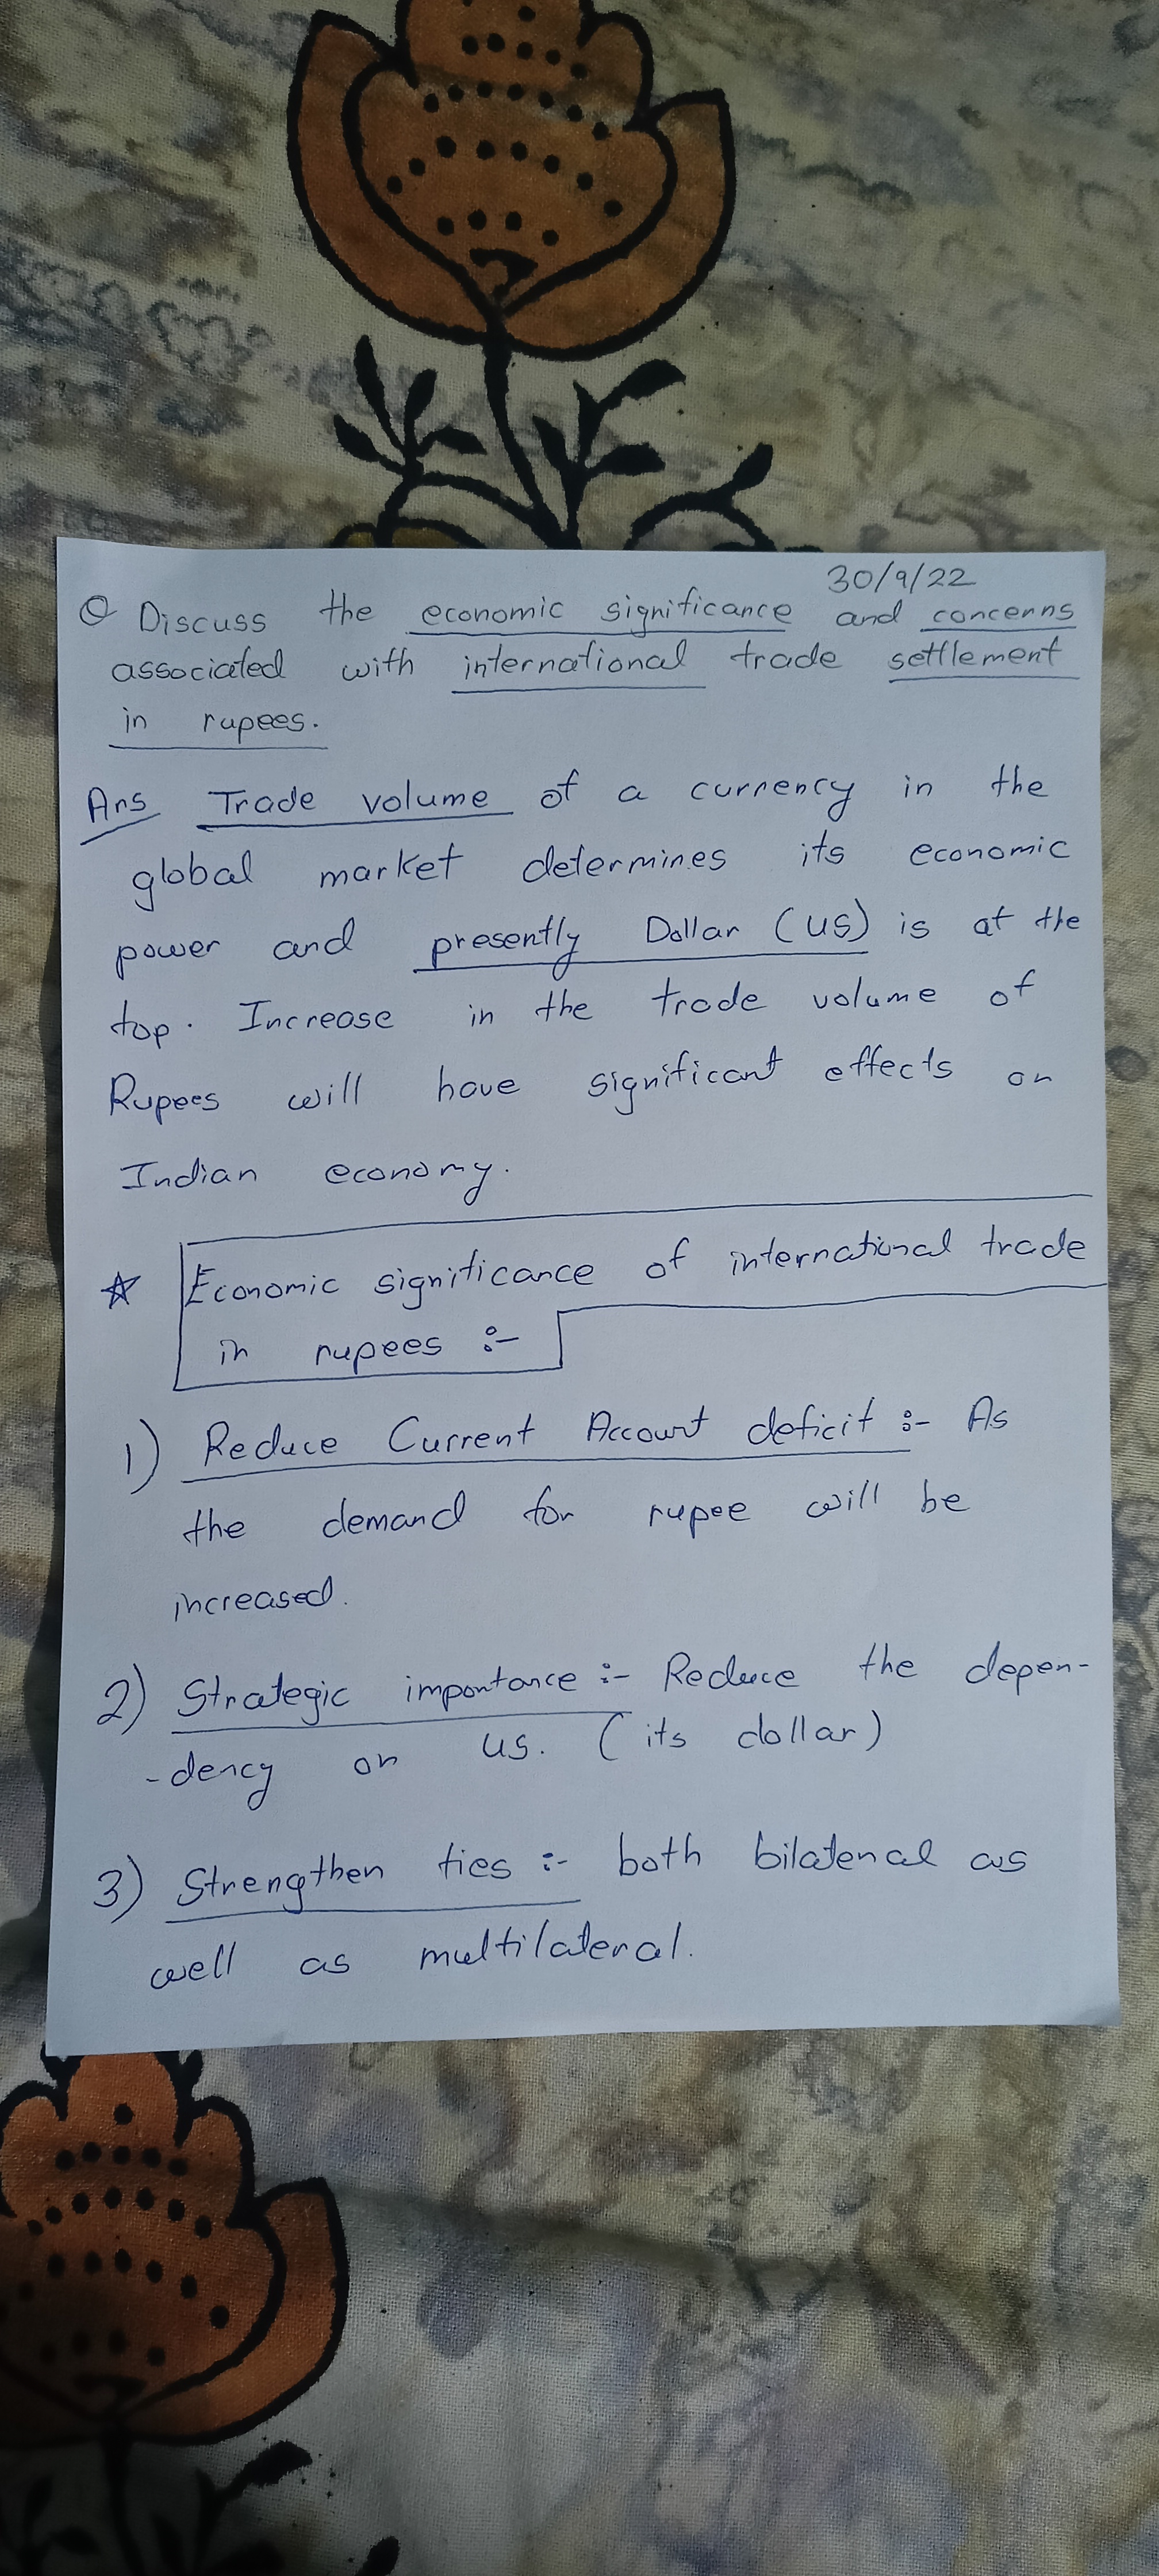 30/9/22
Q Discuss the economic significance and concerns
associated with international trade settlement
in rupees.
Ans Trade volume of a currency in the
global market determines its economic
power and presently Dollar (US) is at the
top. Increase in the trade volume of
Rupees will have significant effects on
Indian economy.
☆ Economic significance of international trade
in rupees :-
1) Reduce Current Account deficit :- As
the demand for rupee will be
increased.
2) Strategic importance :- Reduce the depen-
-dency on US. (its dollar)
3) Strengthen ties :- both bilateral as
well as multilateral.